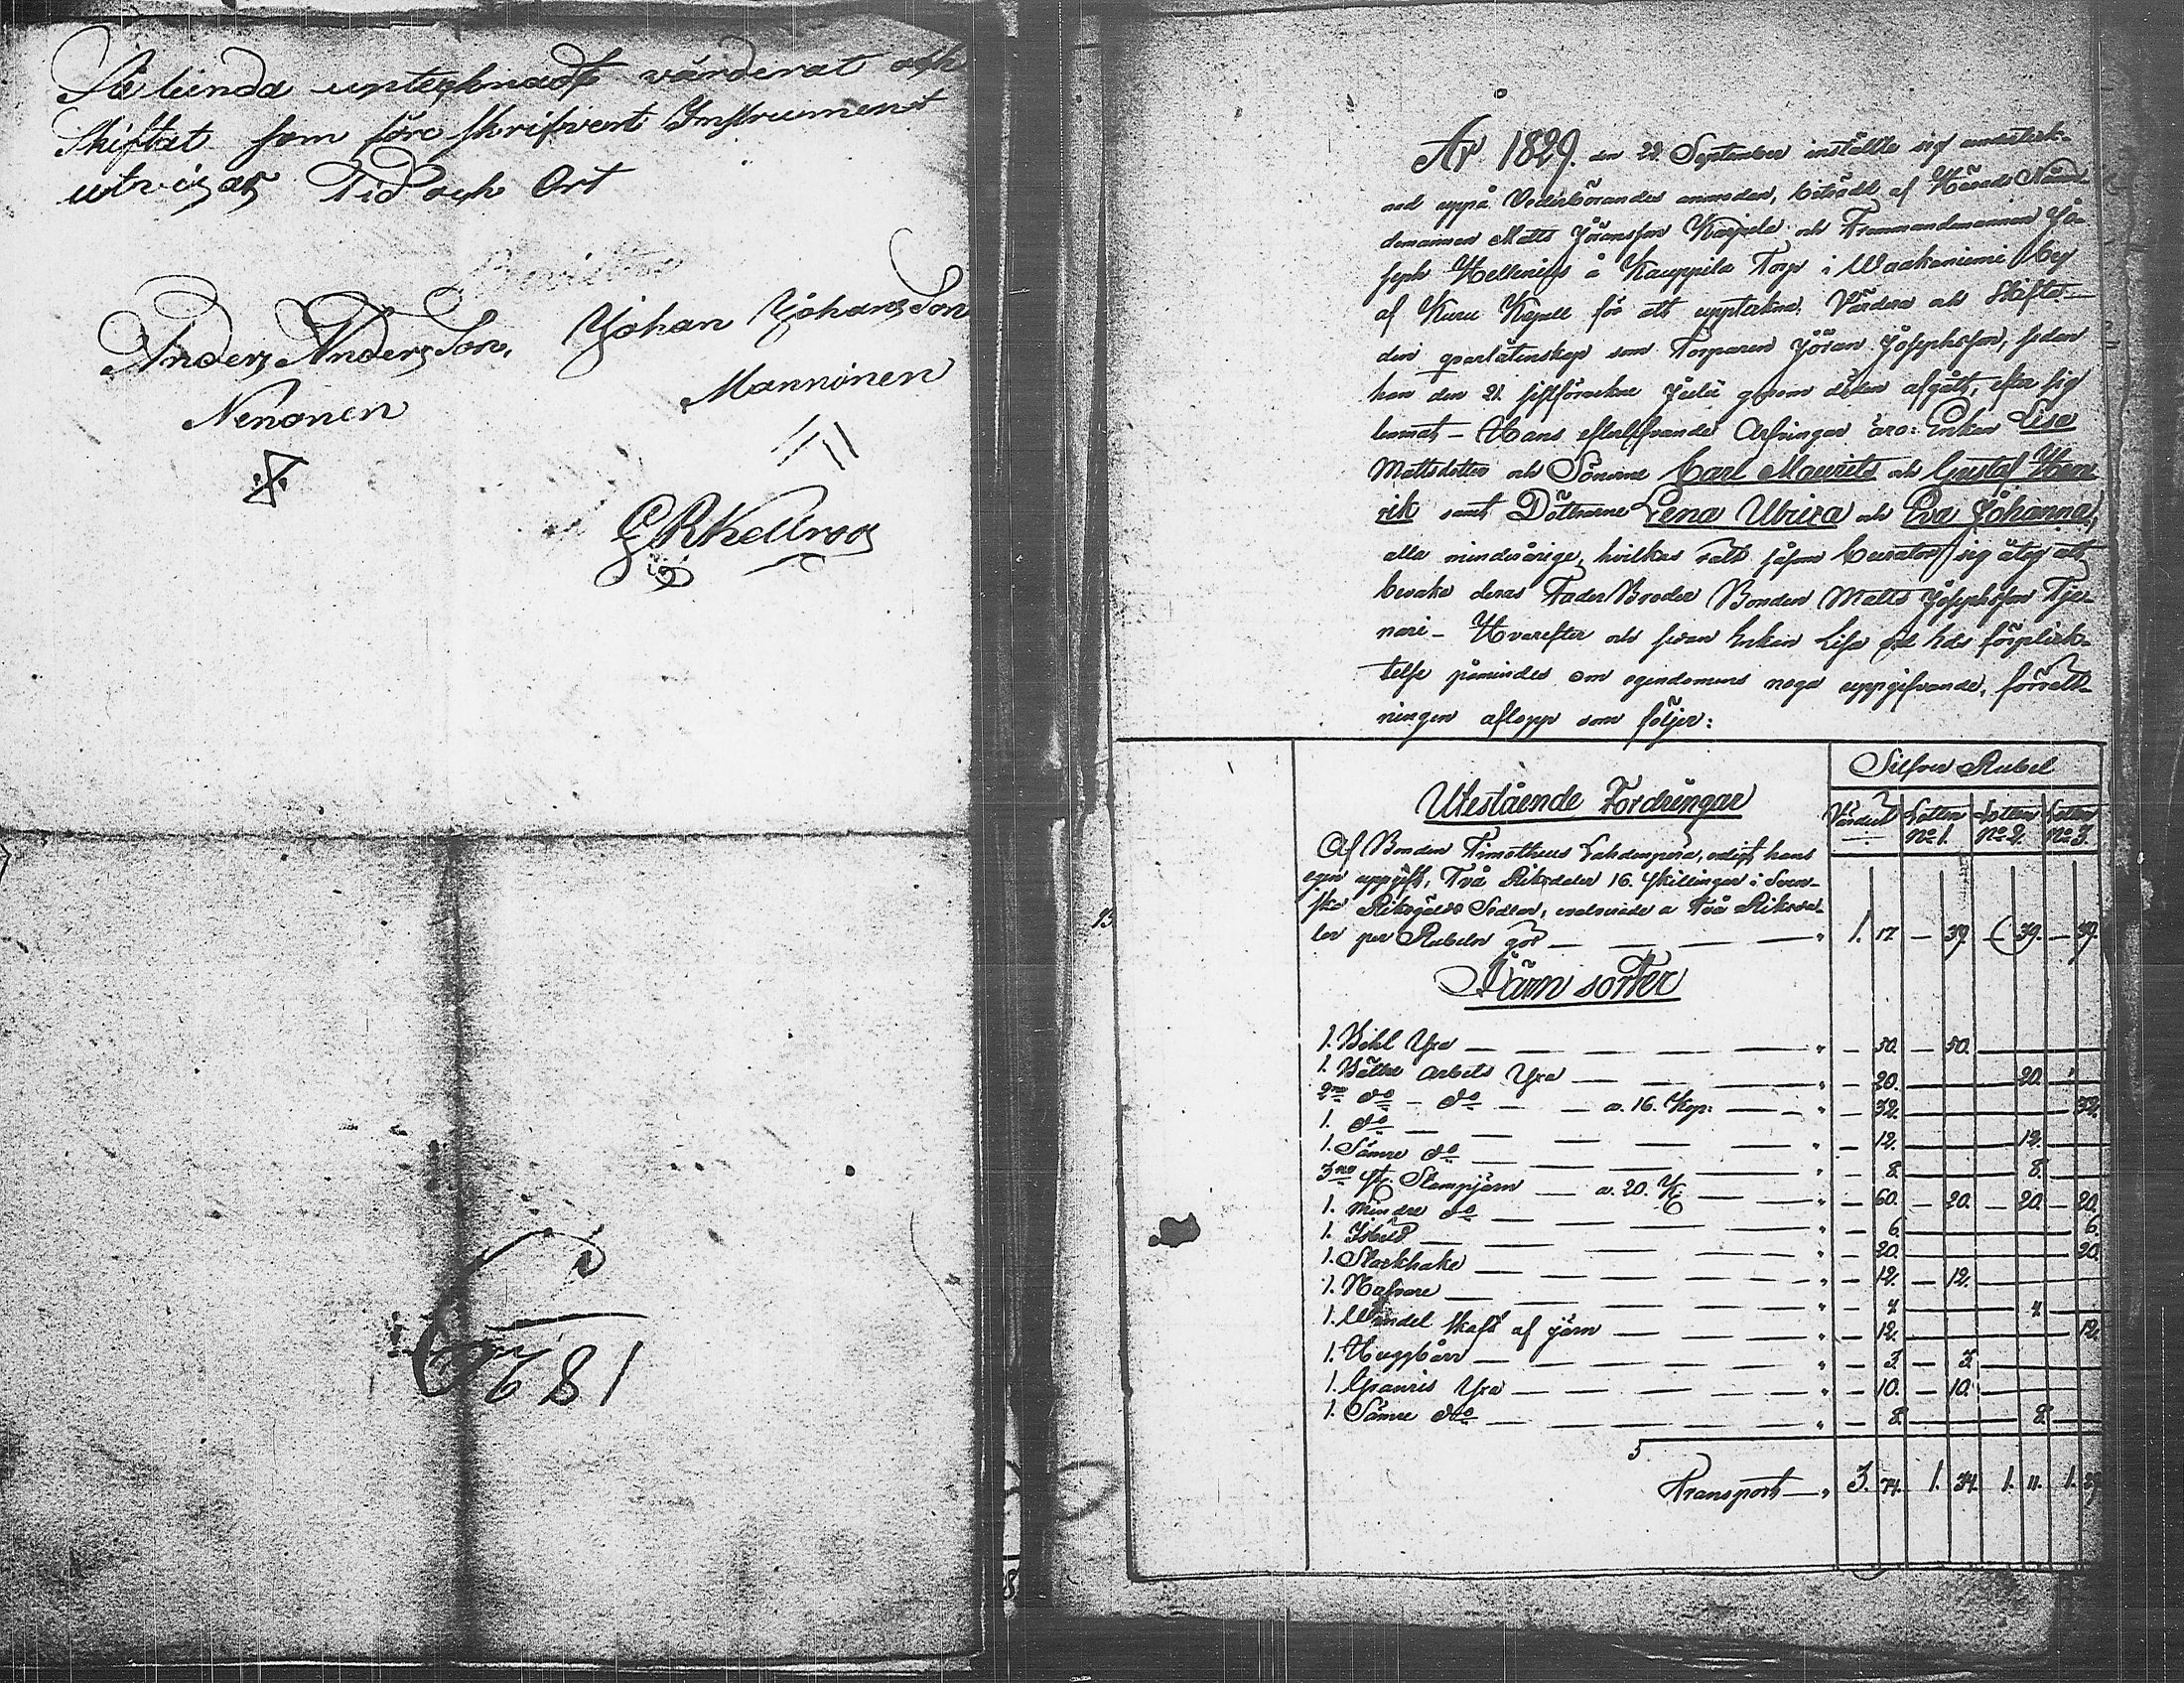 Så lunda uptecknadt värderat och
Skiftat som före skrifvert Instrument
utvisar Tid och Ort
Anders Anders Son,
Nenonen
Johan Johans Son
Mannonen
G R Kellroos
1826
År 1829. den 28. September inställte sig underteck-
nad uppå Vederbörandes anmodan, biträdd af Härads Näm-
demannen Matts Jöransson Karjula och Fremmandemannen Jo-
seph Hellenius å Kauppila Torp i Waakaniemi by
af Kuru Kapell för att uppteckna, Värdera och Skifta
den qvarlåtenskap som Torparen Jöran Josephsson, sedan
han den 21. sistförwekne Julii genom döden afgått, efter sig
lemnat – Hans efterlefvande Arfvingar äro: Enkan Lisa
Mattsdotter och Sönerne Carl Maurits och Gustaf Hen-
rik samt Döttrarne Lena Ulrica och Eva Johanna,
alla minderårige, hvilkas rätt såsom Curator sig åtog att
bevaka deras Fader Broder Bonden Matts Josephsson Tje-
nari – Hvarefter och sedan Enkan Lisa vid Eds förplick-
telse påmindes om egendomens noga uppgifvande, förrätt-
ningen aflopp som följer:
Silfver Rubel
Värdert Lotten No 1. Lotten No 2. Lotten No 3.
Utestående Fordringar
Af Bonden Timotheus Lahdenperä, enligt hans
egen uppgift, Två Riksdaler 16. Skillingar i Sven-
ska Riksgälds Sedlar, evalverade a Två Riksda-
ler per Rubeln gör — — — — " 1. 17 — 39. — 39. — 39.
Järn sorter
1. Bihl Yxa — — — — " — 50. — 50.
1. Bättre Arbets Yxa — — — " — 20. — 20.
2ne do – do — — a. 16. Kop: — — " — 32. — 32.
1. do — — — — " — 12. — 12.
1. Sämre do — — — — " — 8. — 8.
3ne st. Stampjärn — a. 20. K — — " — 60. — 20. — 20. — 20.
1. Mindre do — — — — " — 6. — 6.
1. Isbill — — — — " — 20. — 20.
1. Starkhake — — — — " — 12. — 12.
1. Nafvare — — — — " — 4. — 4.
1. Windel Skaft af järn — — — " — 12. — 12.
1. Huggbärr — — — — " — 3. — 3.
1. Granris Yxa — — — — " — 10. — 10.
1. Sämre dto — — — — " — 8. — 8.
Transport — " 3. 74. 1. 34. 1. 11. 1. 29